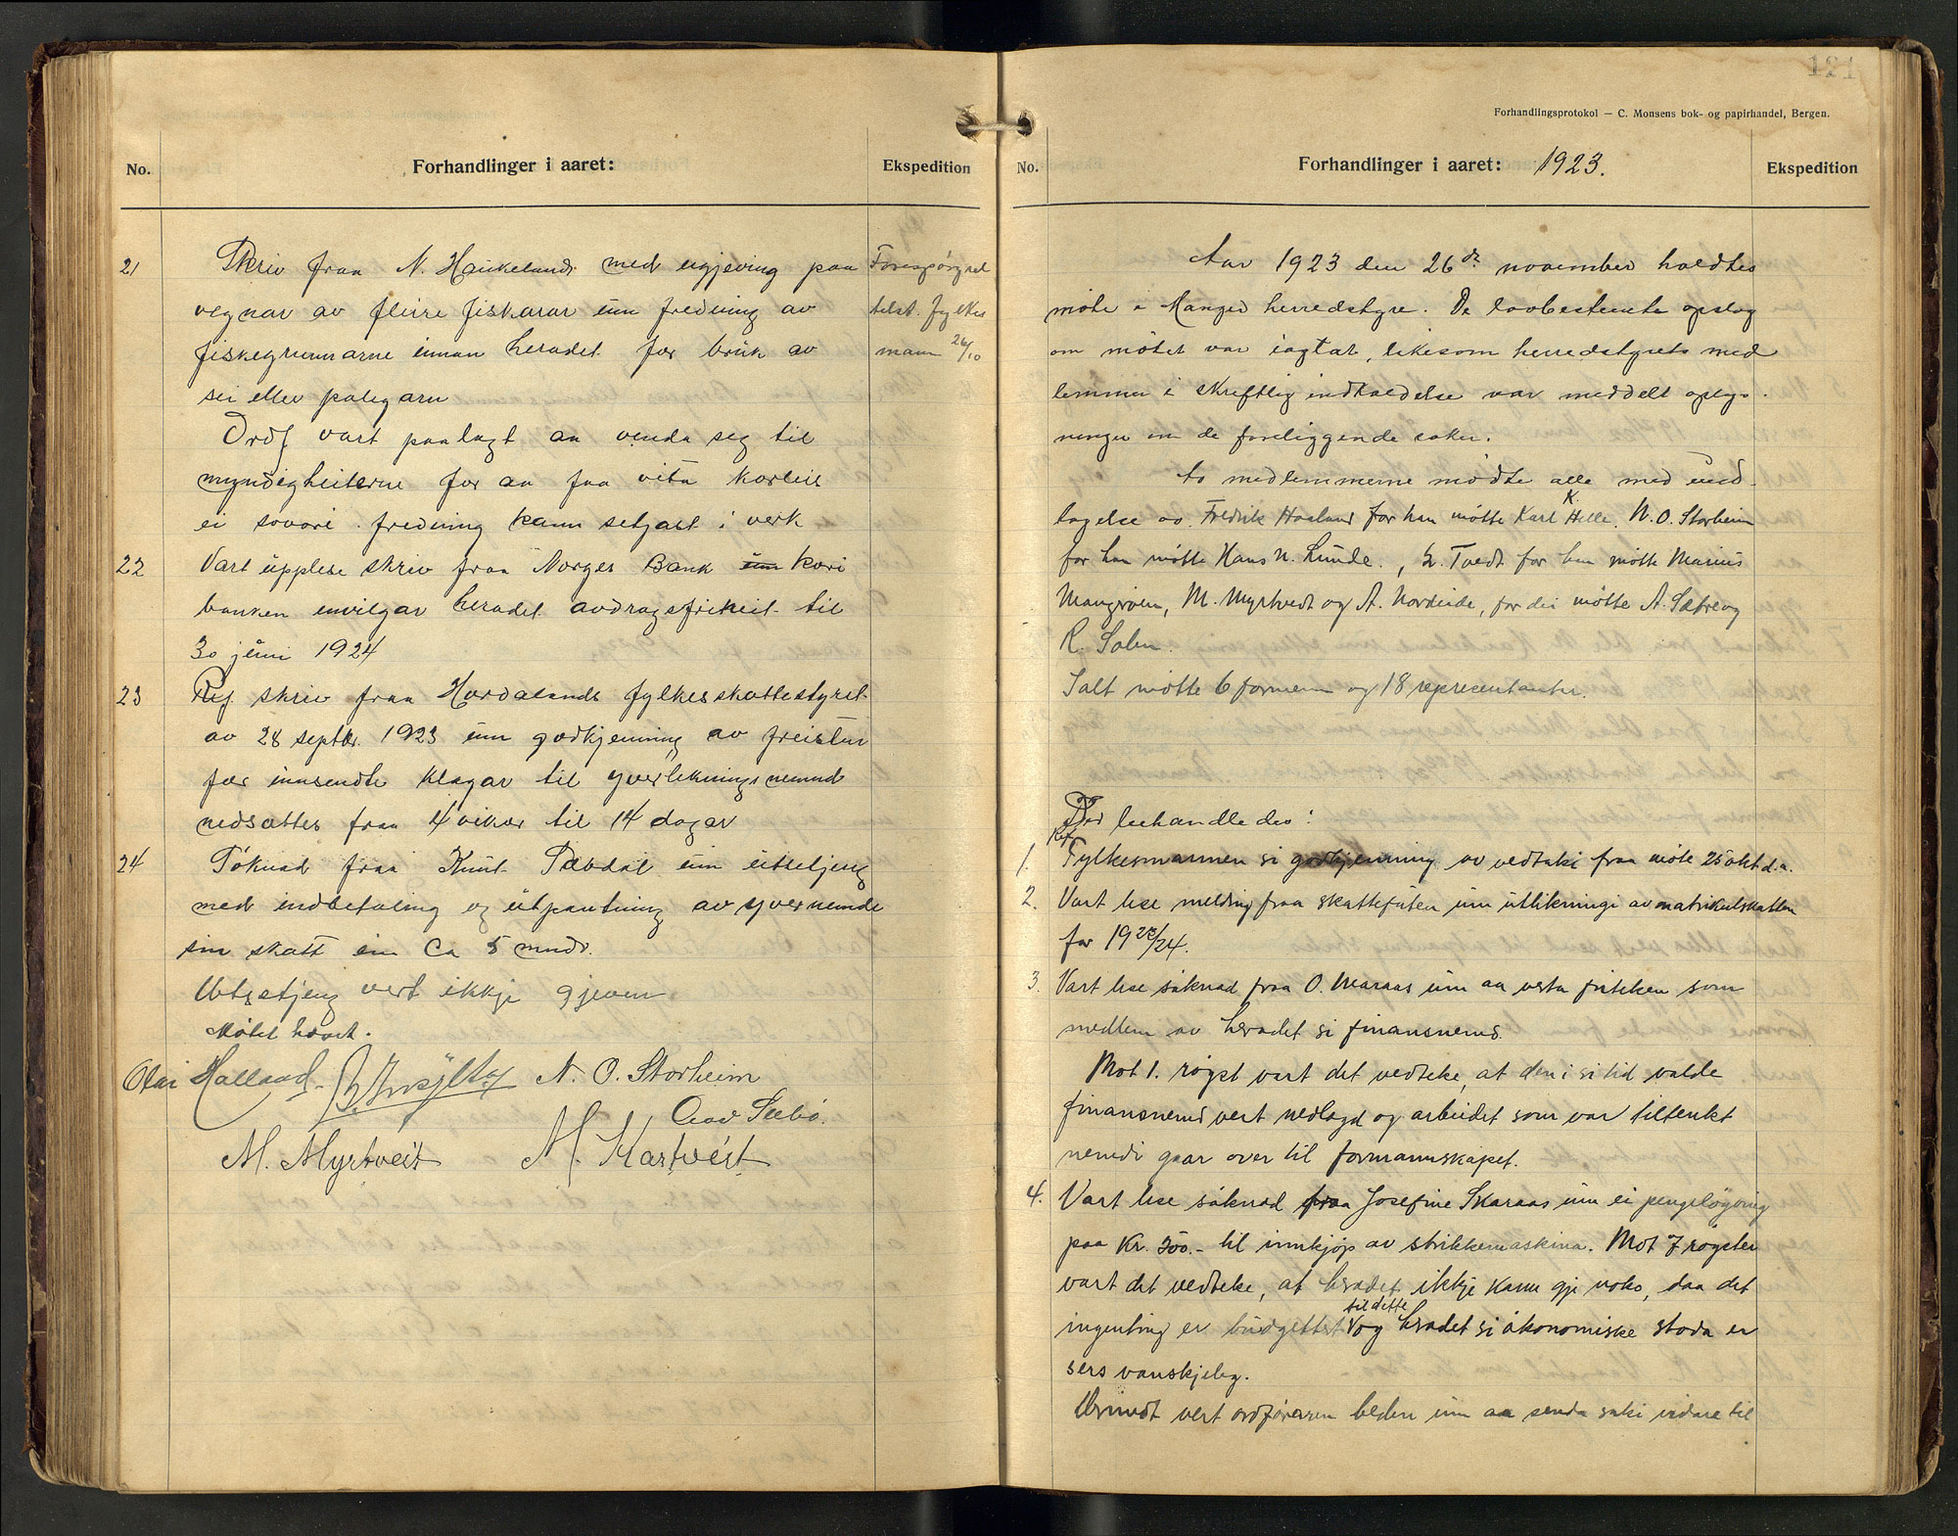 No. Forhandlinger i aaret: Ekspedition
21 Skriv fraa N. Haukeland med ergjeving paa
vegnar av fleire fiskarar um fredning av
fiskegrunnarne innan heradet for bruk av
sei eller palegarn
Ordf vart paalagt aa venda seg til
myndigheiterne for aa faa vita korleis
ei sovori fredning kann setjast i verk
Forespörsel
telst. fylkes
mann 26/10
22 Vart upplese skriv fraa Norges Bank um kori
banken innvilgar heradet avdragsfriheit til
30 juni 1924
23 Ref. skriv fraa Hordalands fylkesskattestyret
av 28 septbr. 1923 um godkjenning av freistur
for innsendte klagar til yverlikningsnemnd
nedsattes fraa 4 vikor til 14 dagar
24 Söknad fraa Knut Sæbdal um utsetjing
med indbetaling og utpantning av yvernemde
sin skatt ein Ca 5 mndr.
Utsetjing vert ikkje gjeven
Mötet hævt.
Olai Halland N. O. Storheim
Aad Sæbö.
M. Myrtveit M. Kartveit
121
Forhandlingsprotokol — C. Monsens bok- og papirhandel, Bergen.
No. Forhandlinger i aaret: 1923. Ekspedition
Aar 1923 den 26de november holdtes
möte i Manger herredstyre. De lovbestemte opslag
om mötet var iagtat, likesom herredstyrets med
lemmer i skriftlig indkaldelse var meddelt oplys-
ninger om de foreliggende saker.
Av medlemmerne mödte alle med und-
tagelse av Fredrik Haaland for han mötte Karl K. Helle, N. O. Storheim
for han mötte Hans N. Lunde., L. Tvedt for han mötte Marius
Mangeröen, M. Myrtvedt og A. Nordeide, for dei mötte A. Sætre og
R. Solen.
Ialt mötte 6 formenn og 18 representanter.
Der behandledes:
1. Ref. Fylkesmannen si godkjenning av vedtaki fraa möte 25 okt d.a.
2. Vart lese melding fraa skattefuten um utlikningi av matrikulskatten
for 1923/24.
3. Vart lese söknad fraa O. Maraas um aa verta friteken som
medlem av heradet si finansnemd.
Mot 1. röyst vart det vedteke, at den i si tid valde
finansnemd vert nedlagd og arbeidet som var tiltenkt
nemdi gaar over til formannskapet.
4. Vart lese söknad fraa Josefine Skaraas um ei pengelöyving
paa Kr. 300.- til innkjöp av strikkemaskina. Mot 7 röyster
vart det vedteke, at heradet ikkje kann gje noko, daa det
ingenting er budgettert til dette og heradet si ökonomiske stoda er
sers vanskjeleg.
Urindt vert ordföraren beden um aa senda saki vidare til